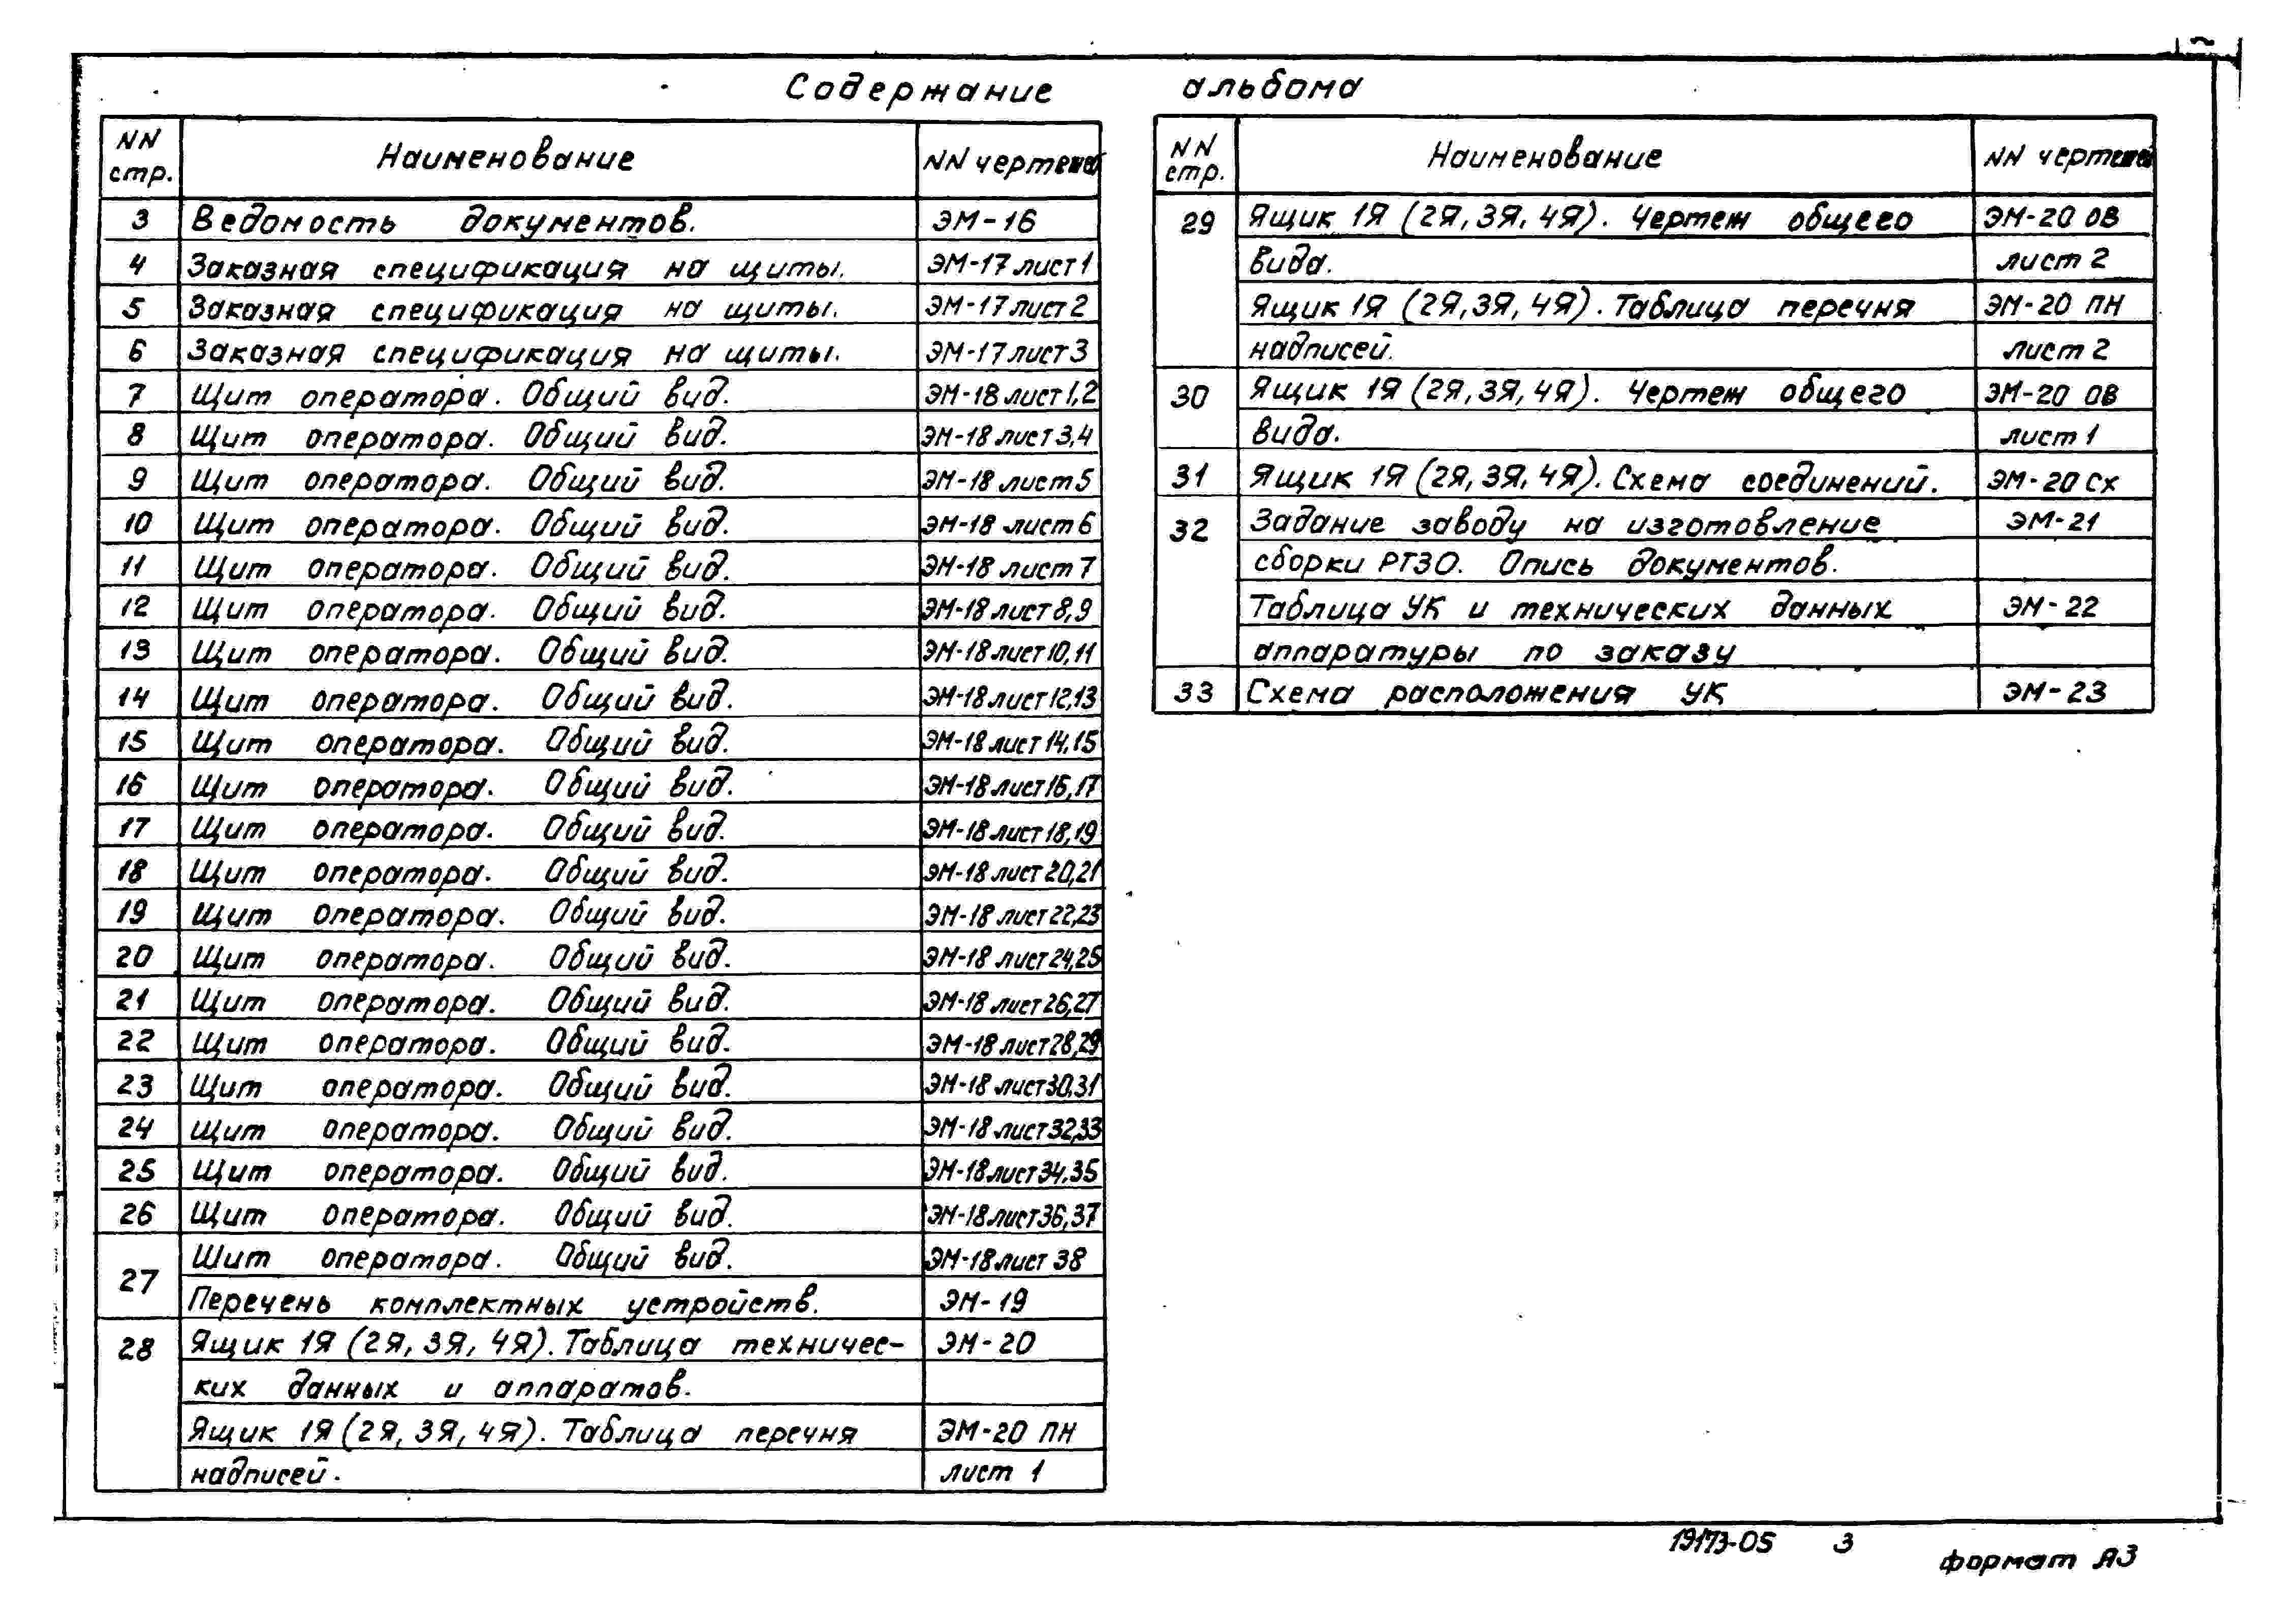 Содержание альбома
NN стр. Наименование NN чертежей
3 Ведомость документов. ЭМ-16
4 Заказная спецификация на щиты. ЭМ-17 лист 1
5 Заказная спецификация на щиты. ЭМ-17 лист 2
6 Заказная спецификация на щиты. ЭМ-17 лист 3
7 Щит оператора. Общий вид. ЭМ-18 лист 1,2
8 Щит оператора. Общий вид. ЭМ-18 лист 3,4
9 Щит оператора. Общий вид. ЭМ-18 лист 5
10 Щит оператора. Общий вид. ЭМ-18 лист 6
11 Щит оператора. Общий вид. ЭМ-18 лист 7
12 Щит оператора. Общий вид. ЭМ-18 лист 8,9
13 Щит оператора. Общий вид. ЭМ-18 лист 10,11
14 Щит оператора. Общий вид. ЭМ-18 лист 12,13
15 Щит оператора. Общий вид. ЭМ-18 лист 14,15
16 Щит оператора. Общий вид. ЭМ-18 лист 16,17
17 Щит оператора. Общий вид. ЭМ-18 лист 18,19
18 Щит оператора. Общий вид. ЭМ-18 лист 20,21
19 Щит оператора. Общий вид. ЭМ-18 лист 22,23
20 Щит оператора. Общий вид. ЭМ-18 лист 24,25
21 Щит оператора. Общий вид. ЭМ-18 лист 26,27
22 Щит оператора. Общий вид. ЭМ-18 лист 28,29
23 Щит оператора. Общий вид. ЭМ-18 лист 30,31
24 Щит оператора. Общий вид. ЭМ-18 лист 32,33
25 Щит оператора. Общий вид. ЭМ-18 лист 34,35
26 Щит оператора. Общий вид. ЭМ-18 лист 36,37
27 Щит оператора. Общий вид. ЭМ-18 лист 38
Перечень комплектных устройств. ЭМ-19
28 Ящик 1Я (2Я, 3Я, 4Я). Таблица техничес- ЭМ-20
ких данных и аппаратов.
Ящик 1Я (2Я, 3Я, 4Я). Таблица перечня ЭМ-20 ПН
надписей. лист 1
NN стр. Наименование NN чертежей
29 Ящик 1Я (2Я, 3Я, 4Я). Чертеж общего ЭМ-20 ОВ
вида. лист 2
Ящик 1Я (2Я, 3Я, 4Я). Таблица перечня ЭМ-20 ПН
надписей. лист 2
30 Ящик 1Я (2Я, 3Я, 4Я). Чертеж общего ЭМ-20 ОВ
вида. лист 1
31 Ящик 1Я (2Я, 3Я, 4Я). Схема соединений. ЭМ-20 СХ
32 Задание заводу на изготовление ЭМ-21
сборки РТЗО. Опись документов.
Таблица УК и технических данных ЭМ-22
аппаратуры по заказу
33 Схема расположения УК ЭМ-23
19173-05 3
формат А3